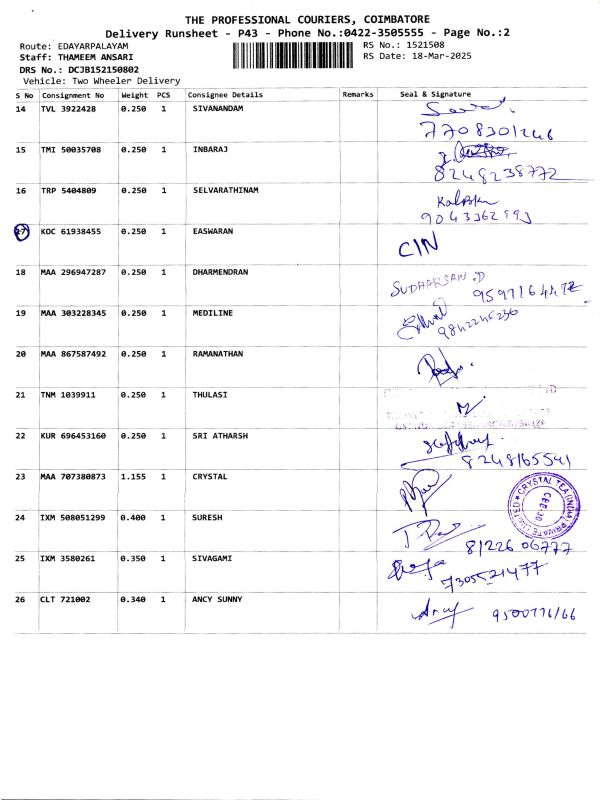 THE PROFESSIONAL COURIERS, COIMBATORE
Delivery Runsheet - P43 - Phone No.:0422-3505555 - Page No.:2
Route: EDAYARPALAYAM
RS No.: 1521508
Staff: THAMEEM ANSARI
RS Date: 18-Mar-2025
DRS No.: DCJB152150802
Vehicle: Two Wheeler Delivery
S No Consignment No Weight PCS Consignee Details Remarks Seal & Signature
14 TVL 3922428 0.250 1 SIVANANDAM
7708301246
15 TMI 50035708 0.250 1 INBARAJ
8248238772
16 TRP 5404809 0.250 1 SELVARATHINAM
9043362593
17 KOC 61938455 0.250 1 EASWARAN CIN
18 MAA 296947287 0.250 1 DHARMENDRAN SUDHARSAN.D
19 MAA 303228345 0.250 1 MEDILINE
9842245236
20 MAA 867587492 0.250 1 RAMANATHAN
21 TNM 1039911 0.250 1 THULASI
22 KUR 696453160 0.250 1 SRI ATHARSH
8248165541
23 MAA 707380873 1.155 1 CRYSTAL
CRYSTAL TEA (INDIA) PRIVATE LIMITED
24 IXM 508051299 0.400 1 SURESH
8122606777
25 IXM 3580261 0.350 1 SIVAGAMI
7305521477
26 CLT 721002 0.340 1 ANCY SUNNY Ancy 9500776166